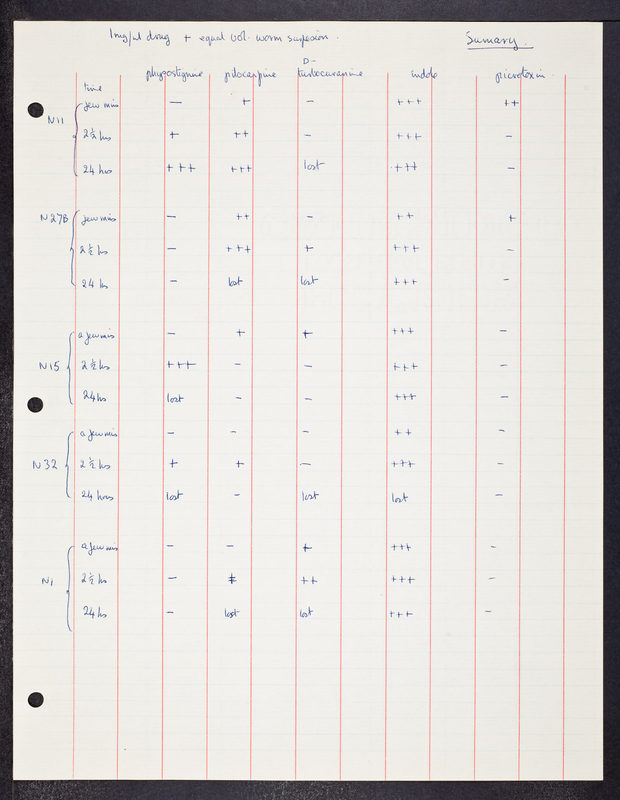 1mg/ml drug + equal vol. worm suspension. Summary.
physostigmine pilocarpine D-tubocuranine indole picrotoxin
time
few mins — + — +++ ++
N11 2½ hs + ++ — +++ —
24 hrs +++ +++ lost +++ —
N27B few mins — ++ — ++ +
2½ hs — +++ + +++ —
24 hs — lost lost +++ —
a few mis — + + +++ —
N15 2½ hs +++ — — +++ —
24hs lost — — +++ —
a few mis — — — ++ —
N32 2½ hs + + — +++ —
24 hours lost — lost lost —
a few mis — — + +++ —
N1 2½ hs — ++ +++ —
24 hs — lost lost +++ —